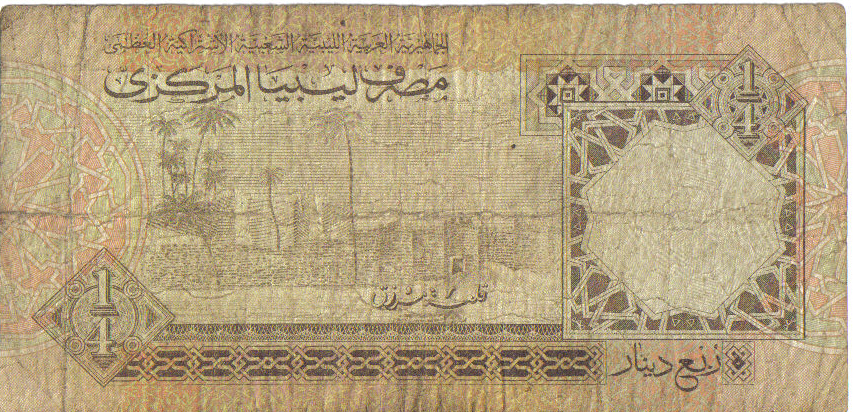 الجماهيرية العربية الليبية الشعبية الاشتراكية العظمى
مصرف ليبيا المركزي
1/4
1/4
ربع دينار